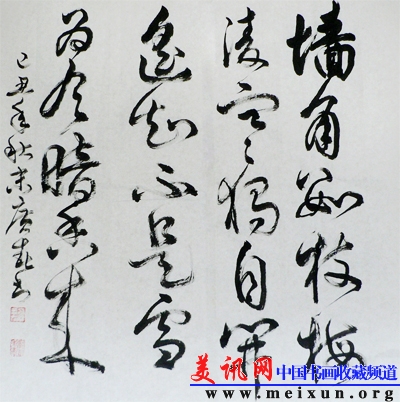 墙角數枝梅
凌寒獨自開
遥知不是雪
為有暗香来
己丑年秋末
美讯网
中国书画收藏频道
www.meixun.org